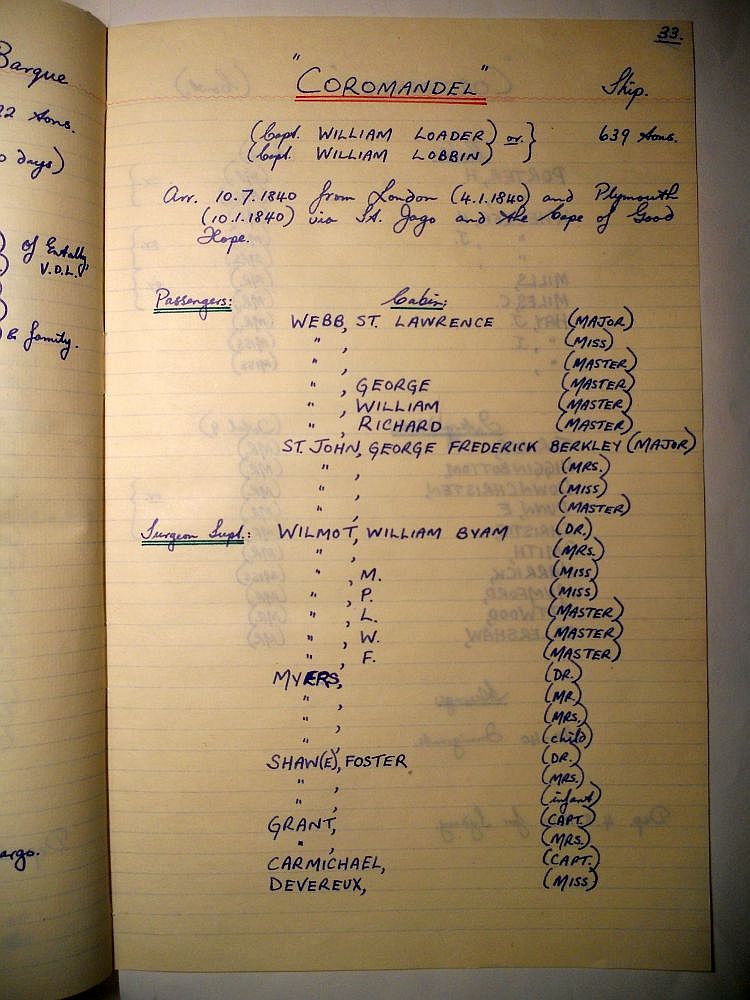 Barque
22 Tons.
0 days)
) of Entally,
V.D.L.
& family.
argo.
33.
"COROMANDEL" Ship.
(Capt. WILLIAM LOADER) or. } 639 Tons.
(Capt. WILLIAM LOBBIN) }
Arr. 10.7.1840 from London (4.1.1840) and Plymouth
(10.1.1840) via St. Jago and the Cape of Good
Hope.
Passengers: Cabin:
WEBB, ST. LAWRENCE (MAJOR)
" , (MISS)
" , (MASTER)
" , GEORGE (MASTER)
" , WILLIAM (MASTER)
" , RICHARD (MASTER)
ST. JOHN, GEORGE FREDERICK BERKLEY (MAJOR)
" , (MRS.)
" , (MISS)
" , (MASTER)
Surgeon Supt.: WILMOT, WILLIAM BYAM (DR.)
" , (MRS.)
" , M. (MISS)
" , P. (MISS)
" , L. (MASTER)
" , W. (MASTER)
" , F. (MASTER)
MYERS, (DR.)
" , (MR.)
" , (MRS.)
" , (child)
SHAW(E), FOSTER (DR.)
" , (MRS.)
" , (infant)
GRANT, (CAPT.)
" , (MRS.)
CARMICHAEL, (CAPT.)
DEVEREUX, (MISS)